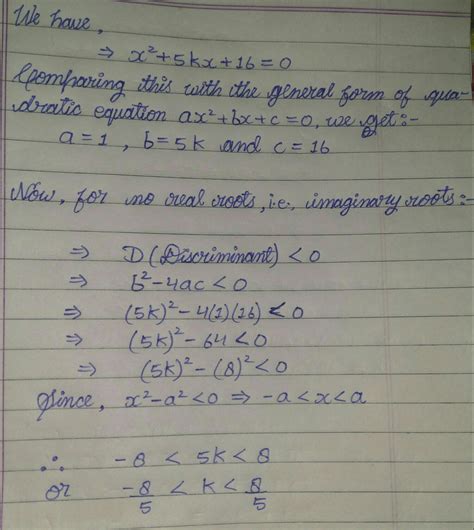 We have,
⇒ x²+5kx+16=0
Comparing this with the general form of qua-
dratic equation ax²+bx+c=0, we get:-
a=1, b=5k and c=16
Now, for no real roots, i.e., imaginary roots:-
⇒ D (Discriminant) <0
⇒ b²-4ac<0
⇒ (5k)²-4(1)(16)<0
⇒ (5k)²-64<0
⇒ (5k)²-(8)²<0
Since, x²-a²<0 ⇒ -a<x<a
∴ -8 < 5k < 8
or -8/5 < k < 8/5